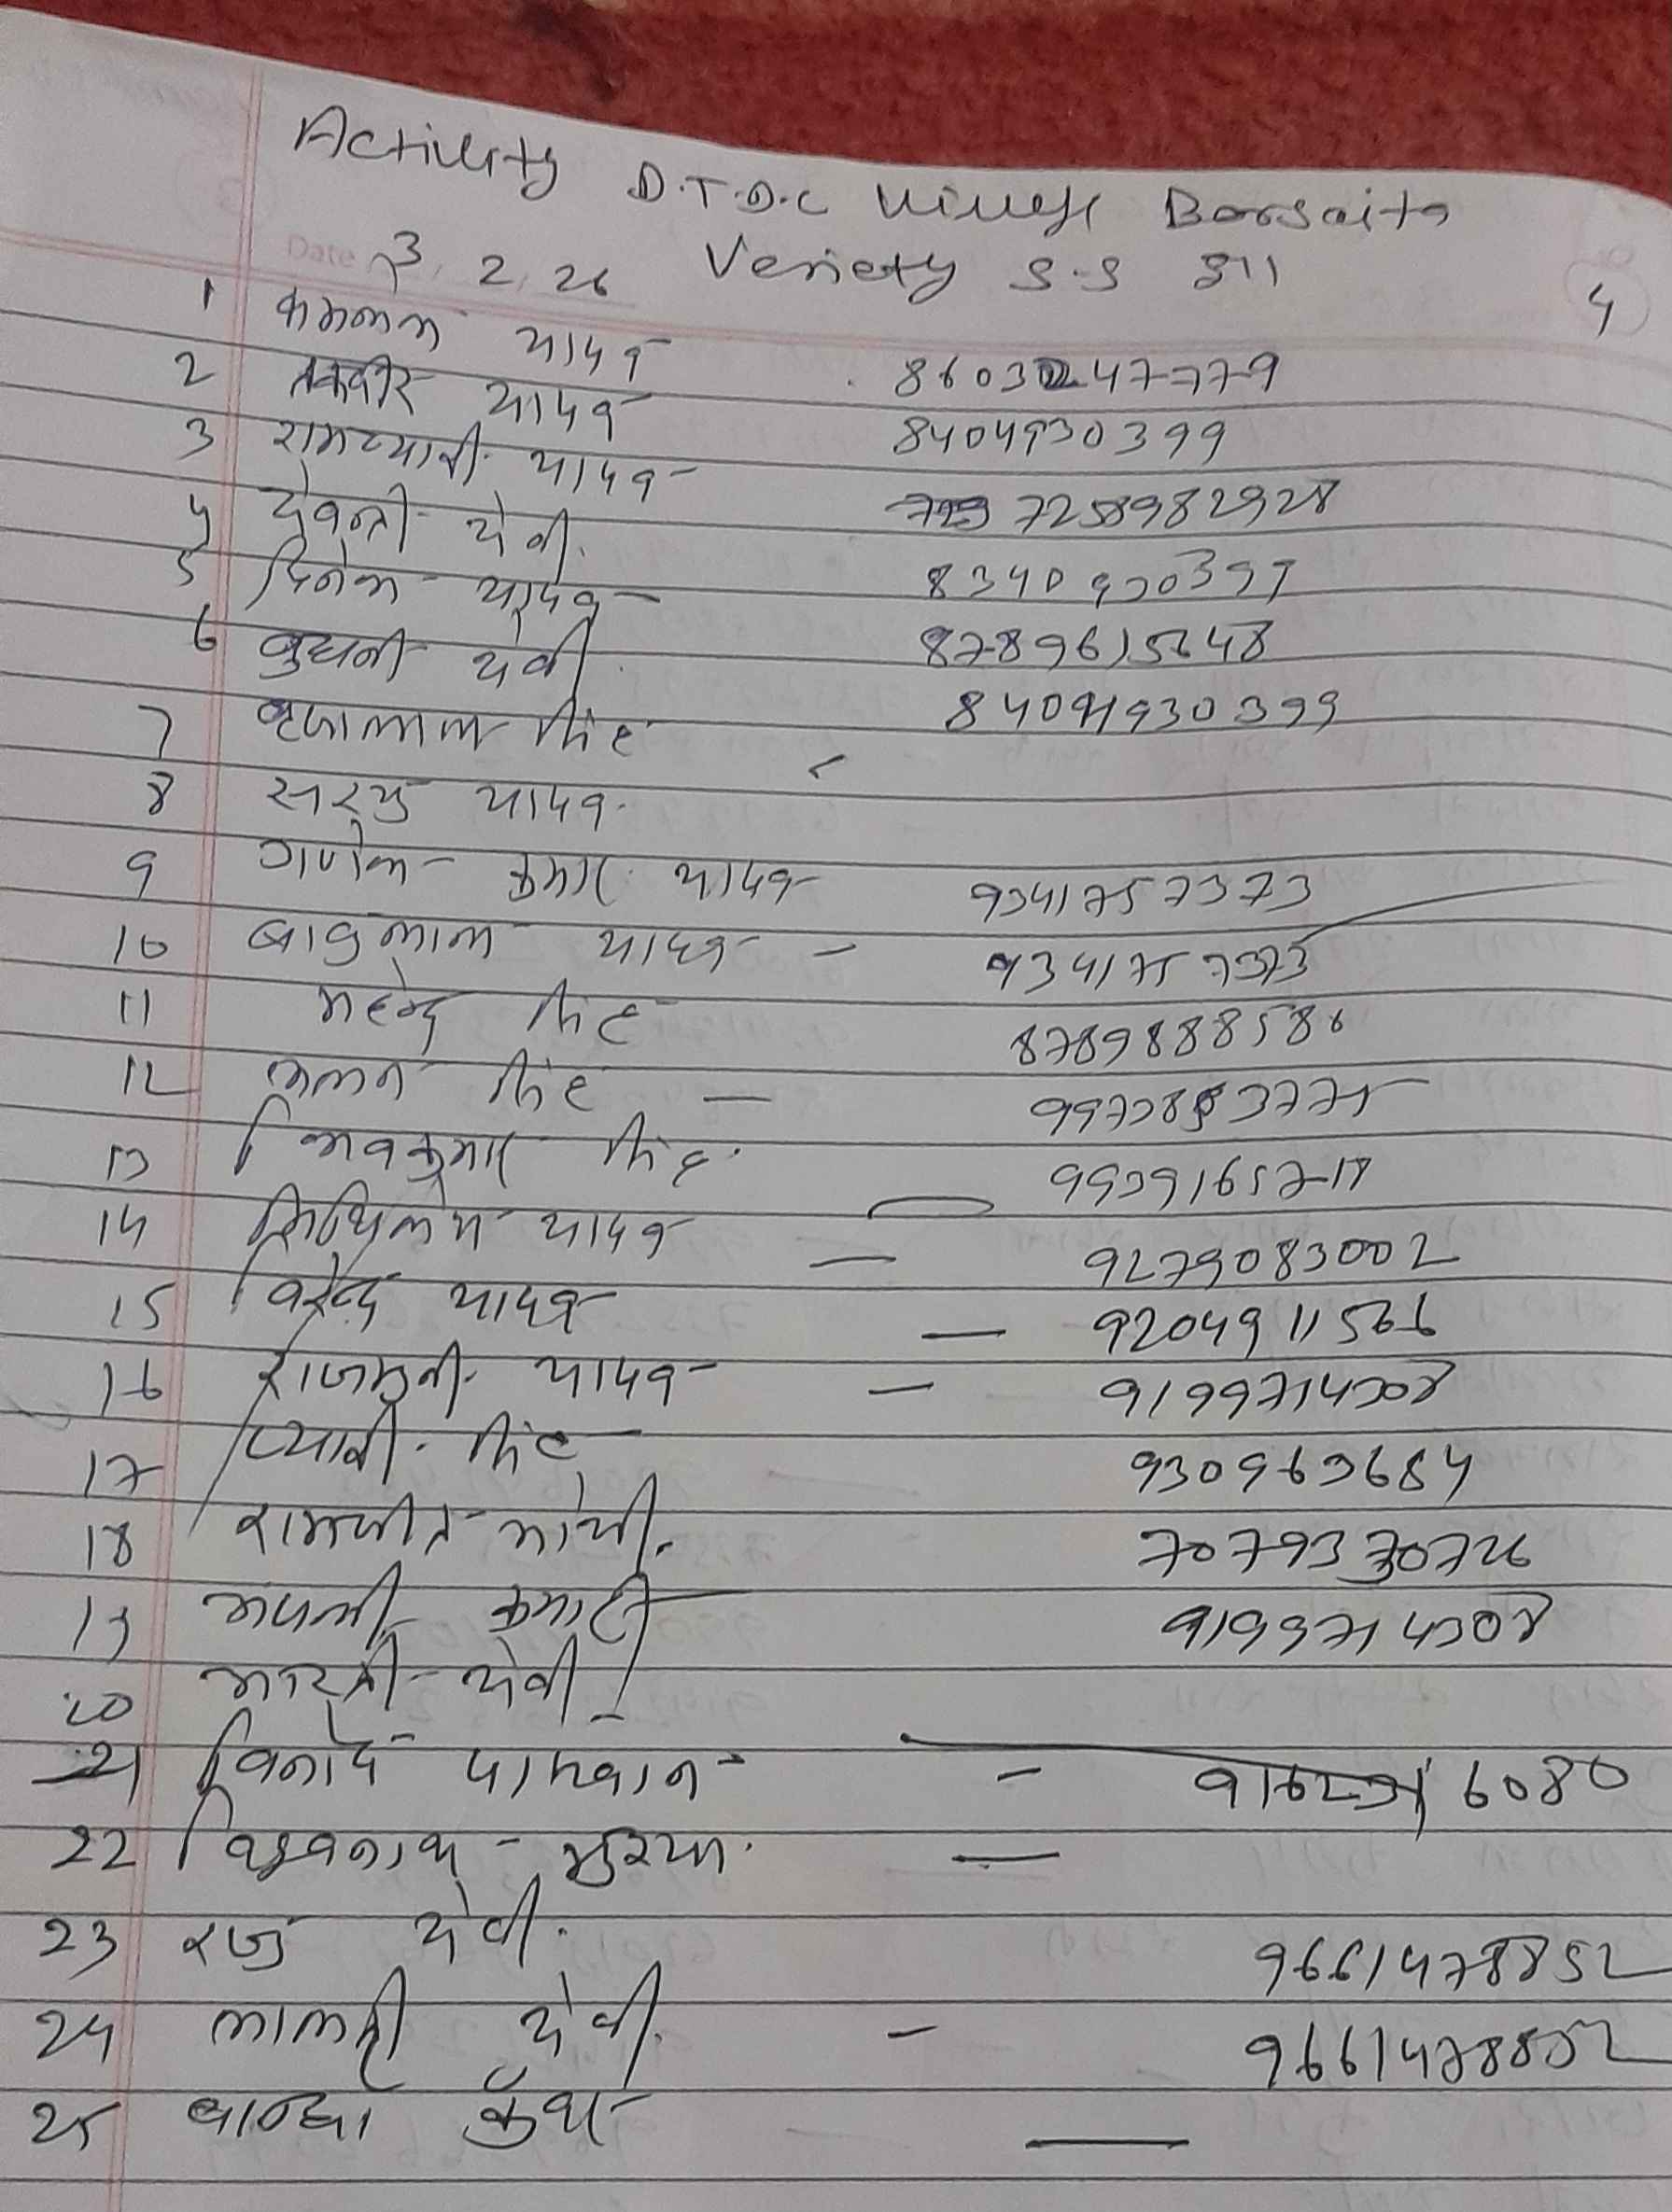 Activity D.T.D.C Village Barsaita
Date 3, 2, 26 Veriety S.S 811
4
1 कमलेश यादव 8603247779
2 तकदीर यादव 8404930399
3 रामप्यारी यादव 7258982928
4 देवन्ती देवी 8340930397
5 दिनेश यादव 8789615648
6 बुधनी देवी 8409930399
7 बृजालाल सिंह
8 सरयु यादव
9 गणेश कुमार यादव 9341757373
10 बाबुलाल यादव - 9341757373
11 महेन्द्र सिंह 8789888586
12 ललन सिंह - 9973883775
13 शिवकुमार सिंह 9939165718
14 मिथिलेश यादव - 9279083002
15 विरेन्द्र यादव - 9204911566
16 राजमुनी यादव - 9199714308
17 प्यारी सिंह 930963684
18 रामजीत मोची 7079330726
19 कुमारी 9199714308
20 भारती देवी
21 विनोद पासवान - 6080
22 विश्वनाथ भुइया -
23 रजु देवी 9661478852
24 लालती देवी - 9661478852
25 कुँवर -